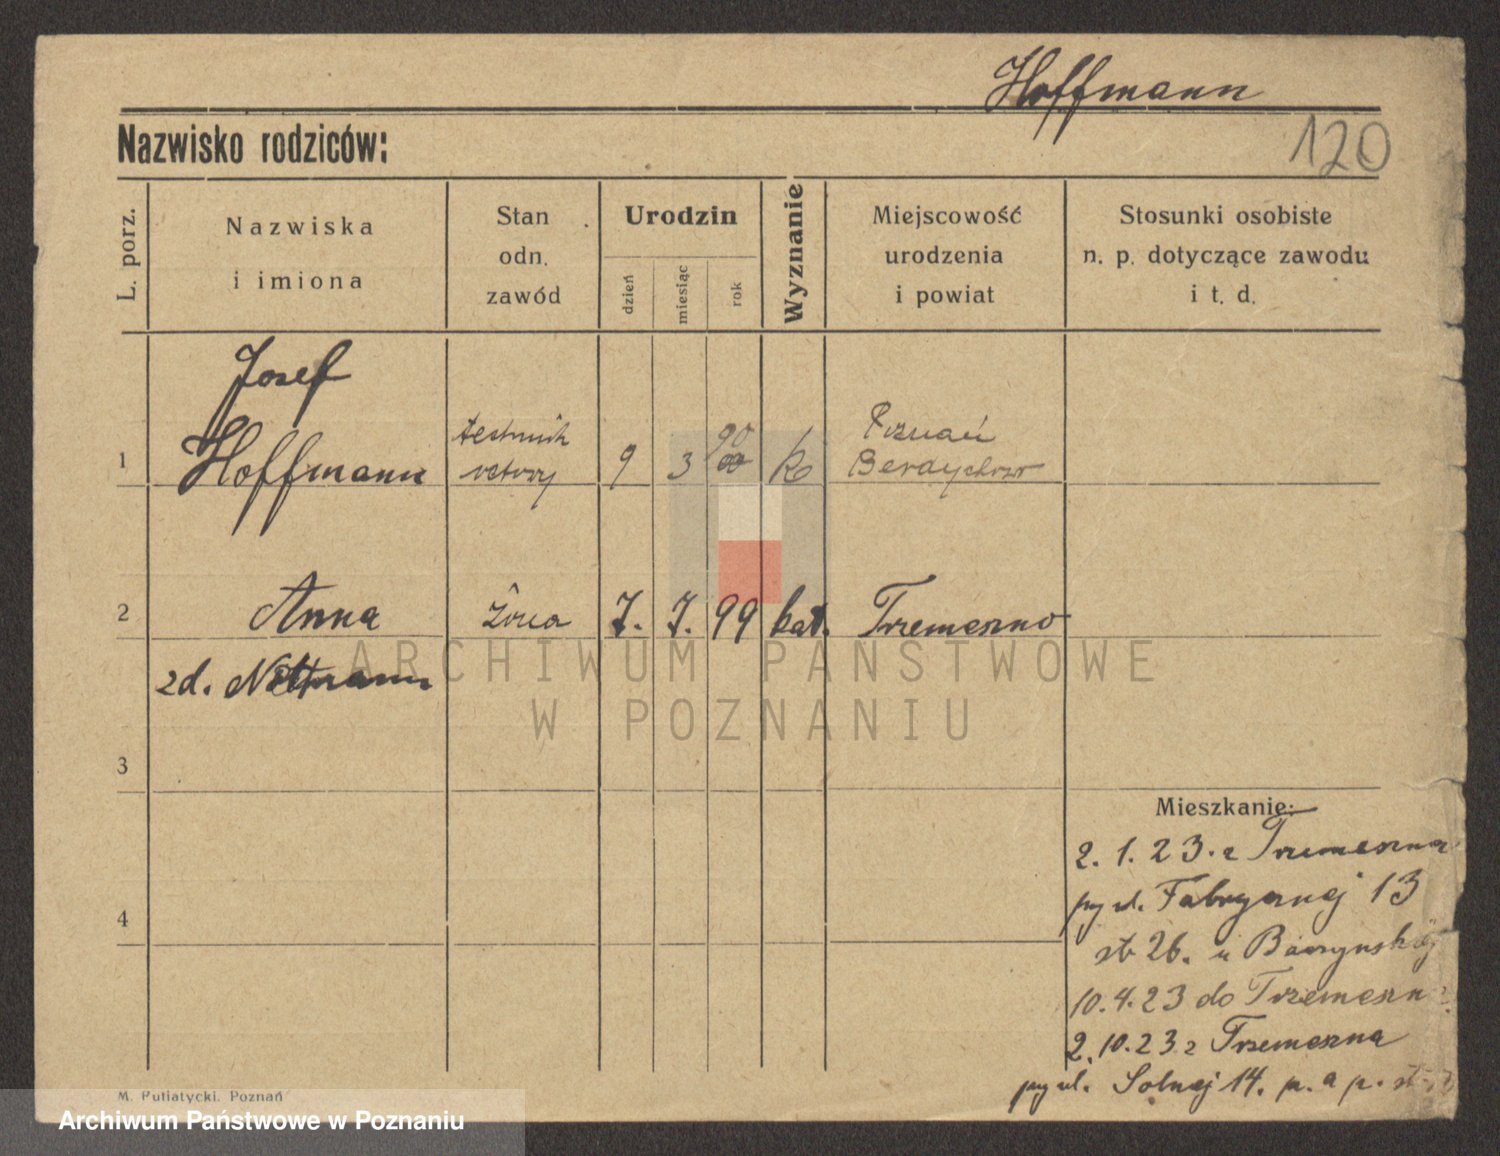 Hoffmann
120
Nazwisko rodziców:
L. porz.
Nazwiska
i imiona
Stan
odn.
zawód
Urodzin
dzień
miesiąc
rok
Wyznanie
Miejscowość
urodzenia
i powiat
Stosunki osobiste
n. p. dotyczące zawodu
i t. d.
Josef
1 Hoffmann technik 9 3 90 k Poznań
Berdychowo
2 Anna żona 7. 7. 99 kat. Trzemeszno
zd.
3
Mieszkanie:
2. 1. 23. z Trzemeszna
4 przy ul. Fabrycznej 13
st 26. u
10.4.23 do Trzemeszn
2.10.23 z Trzemeszna
przy ul. Solnej 14. p. a p.
M. Putiatycki. Poznań
ARCHIWUM PAŃSTWOWE
W POZNANIU
Archiwum Państwowe w Poznaniu